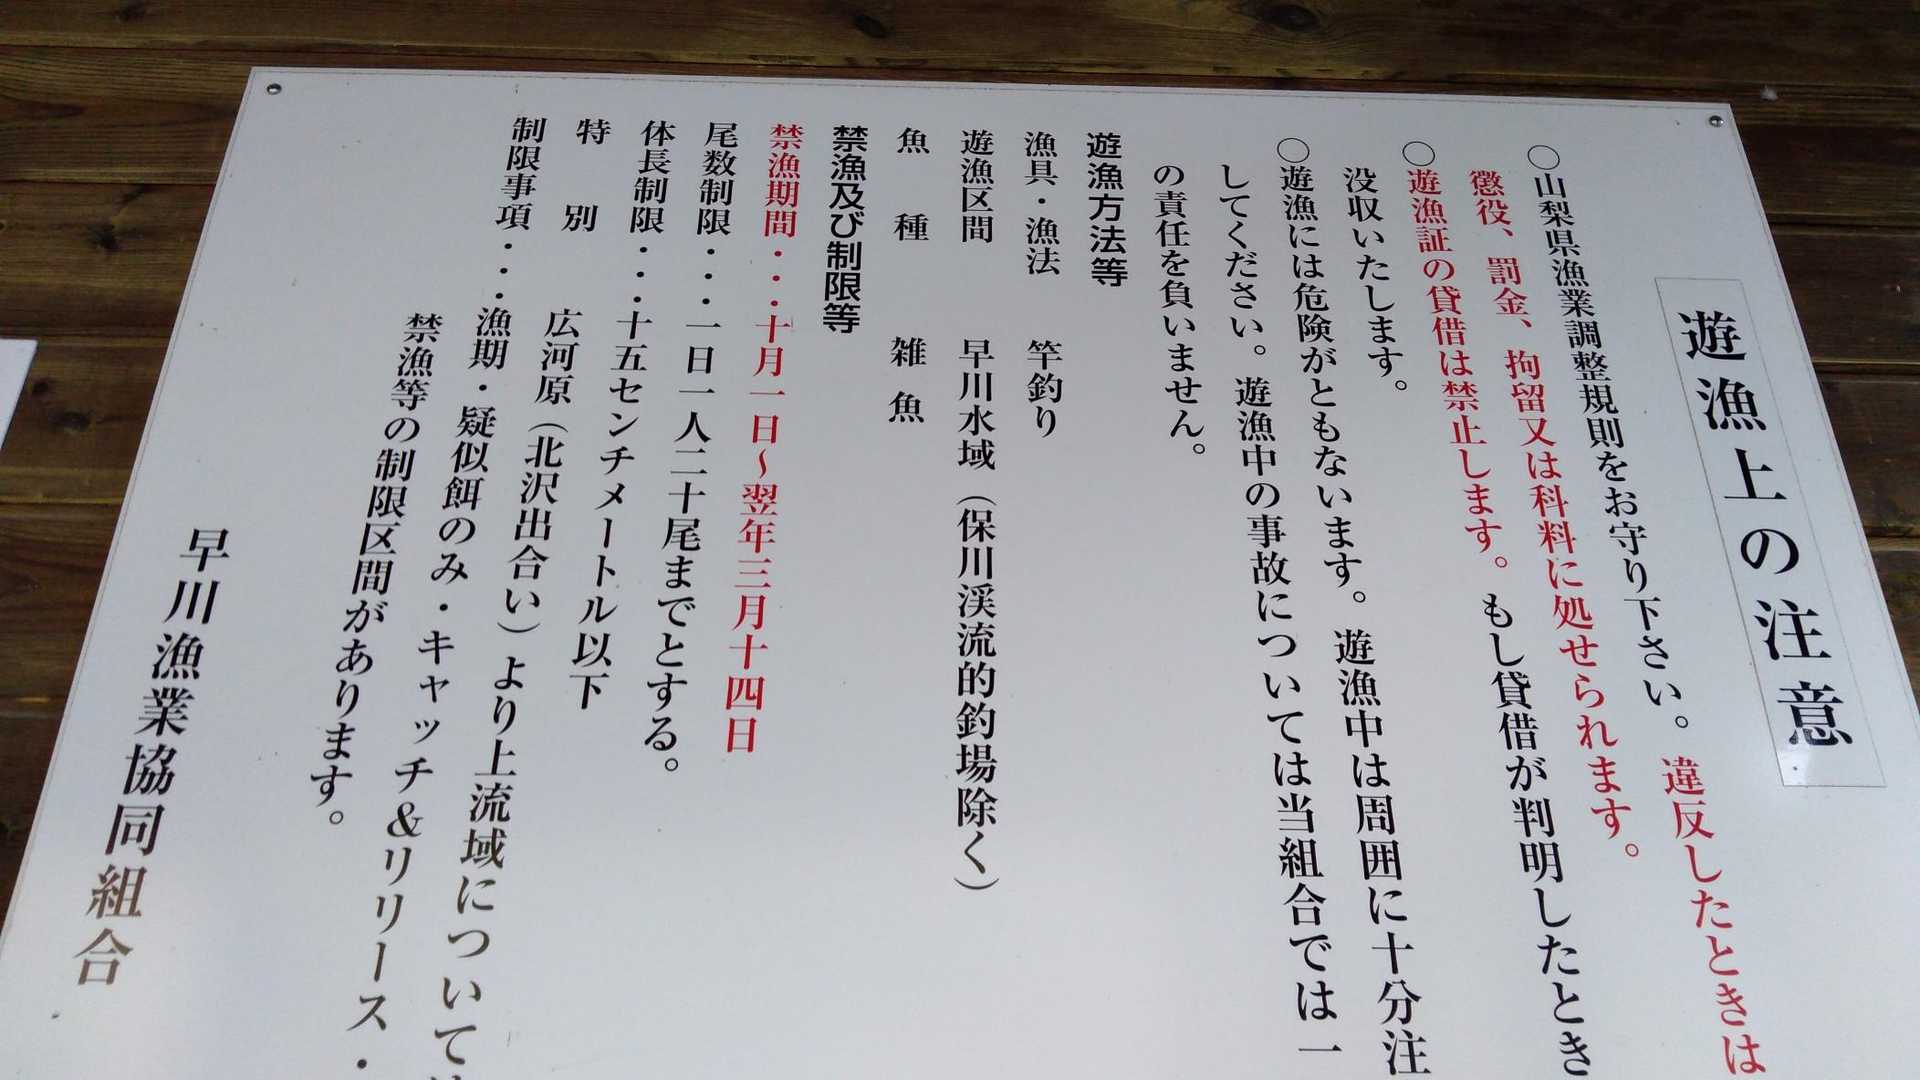 遊漁上の注意
○山梨県漁業調整規則をお守り下さい。違反したときは
懲役、罰金、拘留又は科料に処せられます。
○遊漁証の貸借は禁止します。もし貸借が判明したとき
没収いたします。
○遊漁には危険がともないます。遊漁中は周囲に十分注
してください。遊漁中の事故については当組合では一
の責任を負いません。
遊漁方法等
漁具・漁法 竿釣り
遊漁区間 早川水域（保川渓流的釣場除く）
魚種 雑魚
禁漁及び制限等
禁漁期間・・・十月一日～翌年三月十四日
尾数制限・・・一日一人二十尾までとする。
体長制限・・・十五センチメートル以下
特別 広河原（北沢出合い）より上流域については
制限事項・・・漁期・疑似餌のみ・キャッチ&リリース・
禁漁等の制限区間があります。
早川漁業協同組合